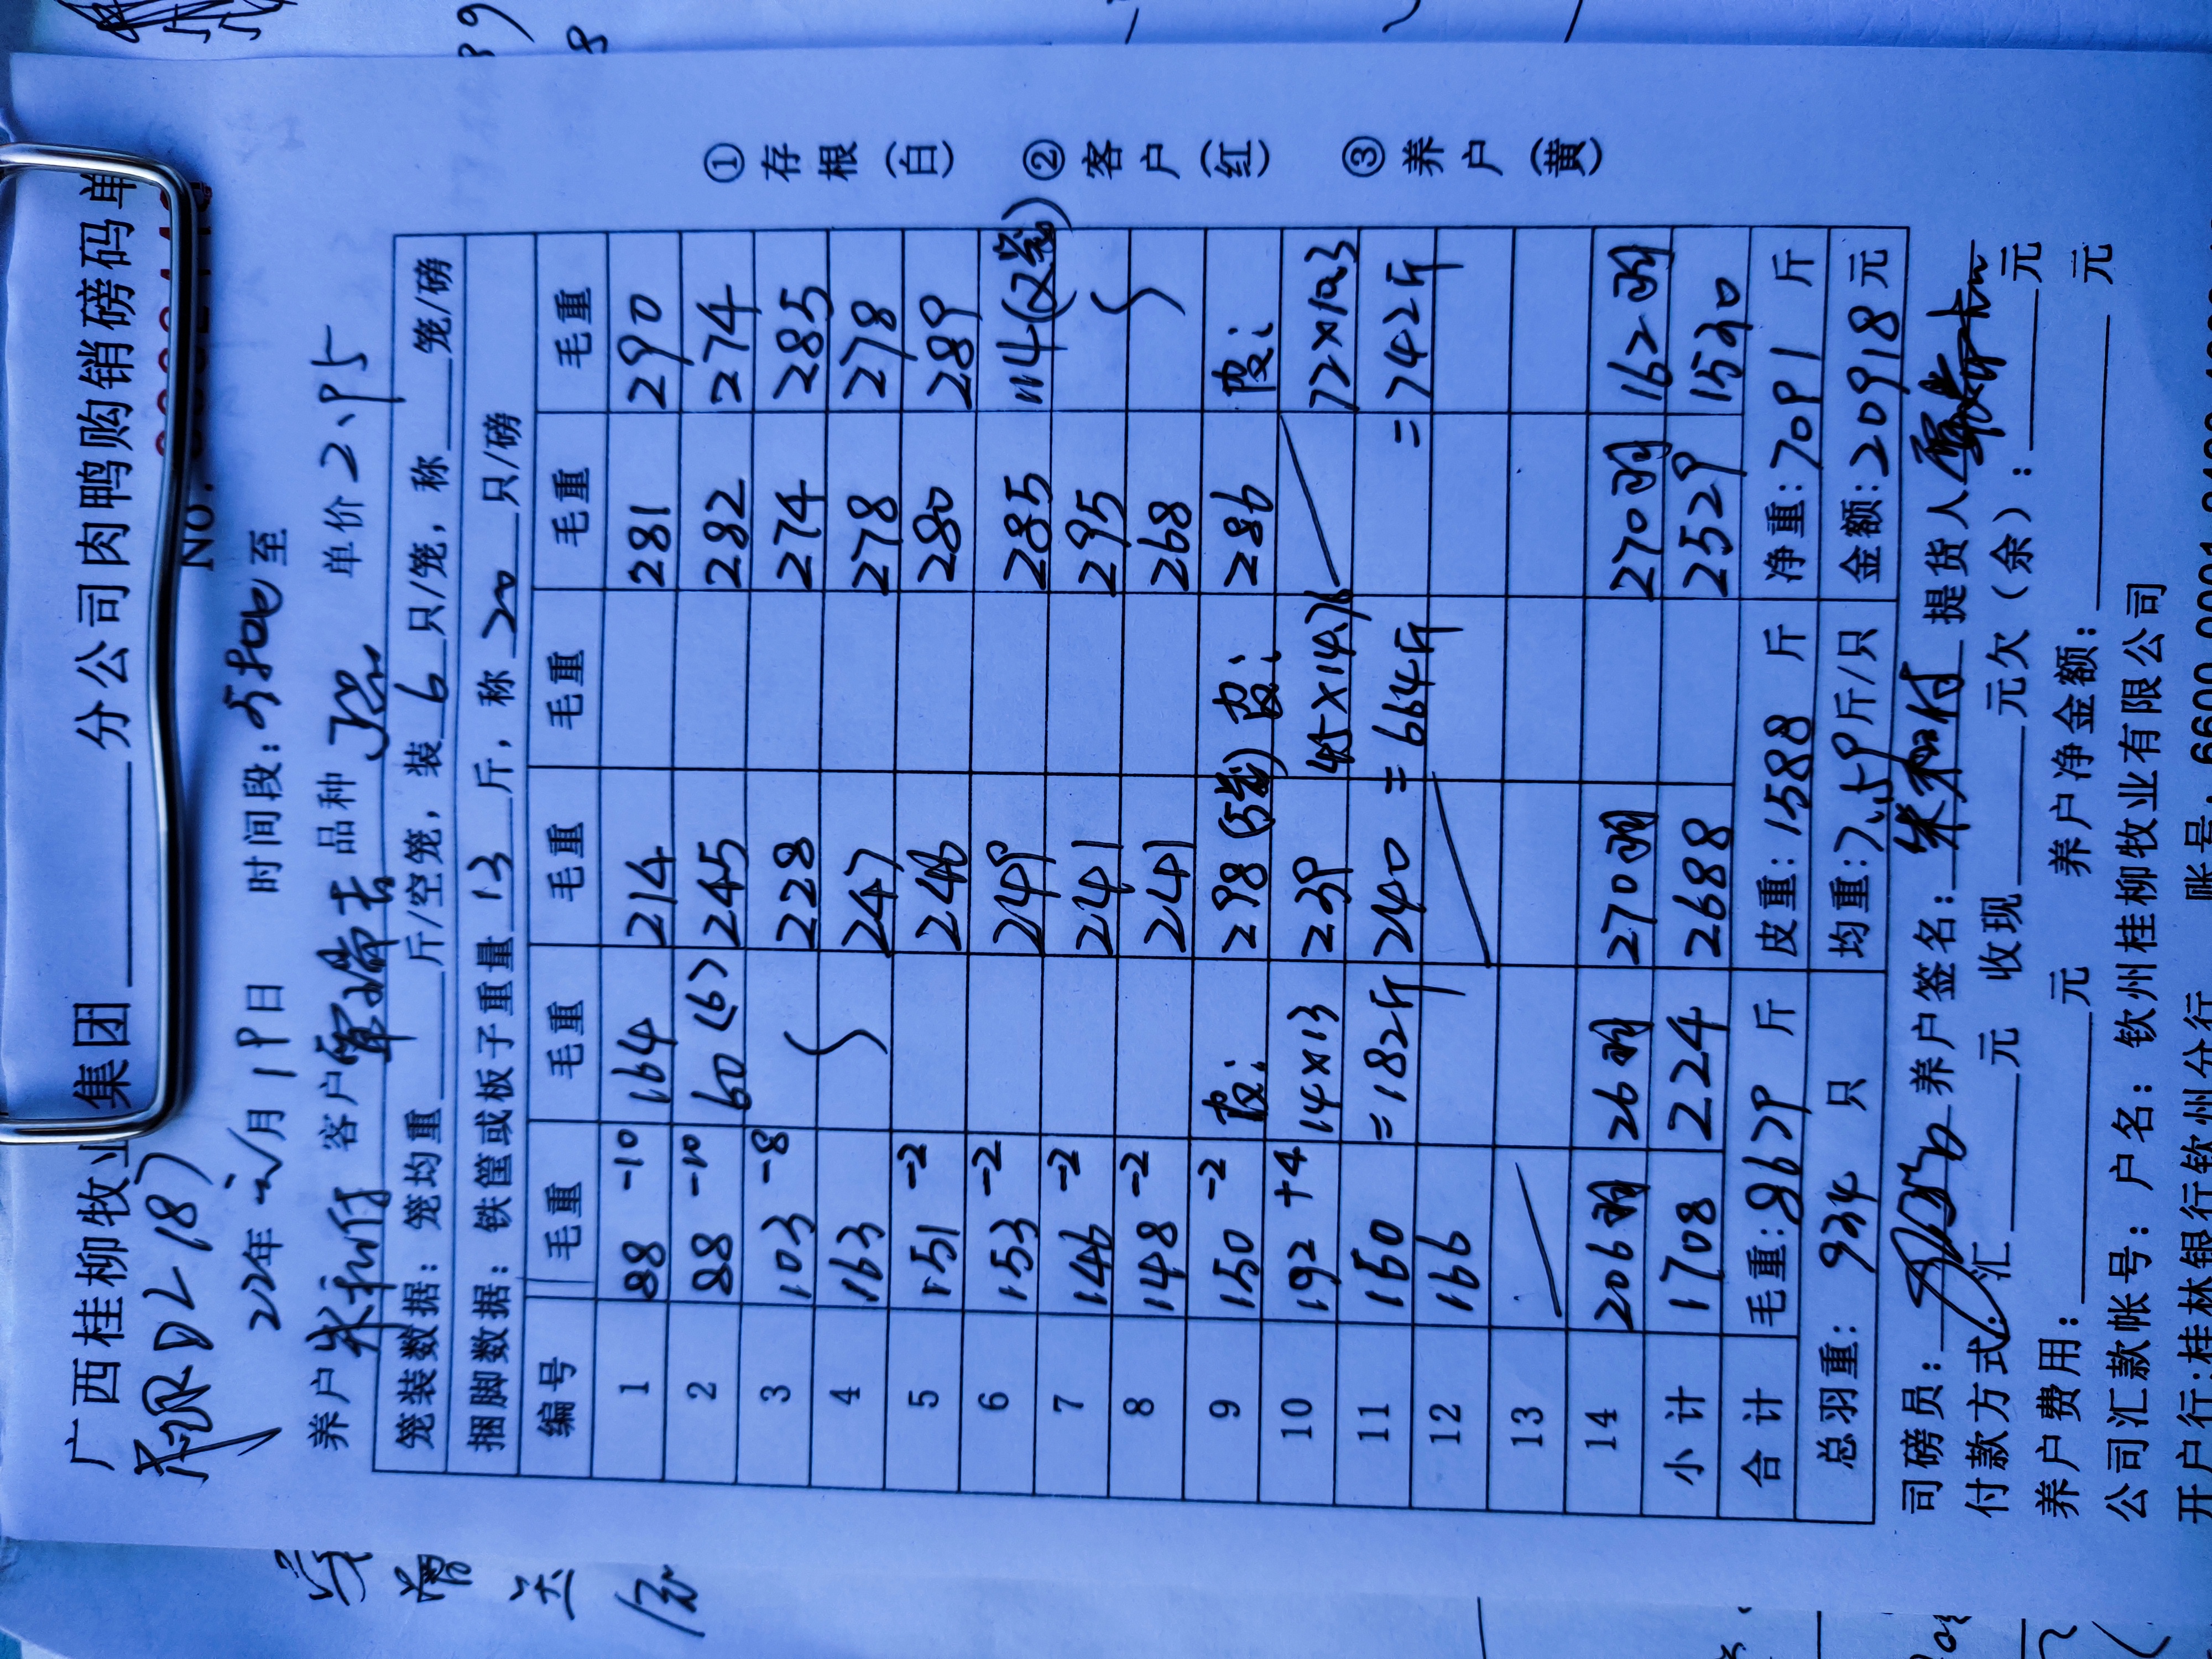 广西桂柳牧业集团 分公司肉鸭购销磅码单
RDL187
NO.
22年 月19日 时间段: 至
养户 朱和付 客户 品种 单价 2.95
笼装数据: 笼均重 斤/空笼, 装 6 只/笼, 称 笼/磅
捆脚数据: 铁筐或板子重量 13 斤, 称 20 只/磅
编号 毛重 毛重 毛重 毛重 毛重 毛重
1 88 -10 164 214 281 290
2 88 -10 60 (6) 245 282 274
3 103 -8 228 274 285
4 163 247 278 278
5 151 -2 246 280 289
6 153 -2 249 285 114
7 146 -2 241 295
8 148 -2 241 268
9 150 -2 皮: 298 (5笼) 皮: 286 皮:
10 192 +4 14×13 239 45×14.76 72×10.3
11 160 =182斤 240 =664斤 =742斤
12 166
13
14 206羽 26羽 270羽 270羽 162羽
小计 1708 224 2688 2529 1530
合计 毛重: 8679 斤 皮重: 1588 斤 净重: 7091 斤
总羽重: 934 只 均重: 7.59 斤/只 金额: 20918 元
司磅员: 养户签名: 朱和付 提货人
付款方式: 汇 元 收现 元欠(余): 元
养户费用: 元 养户净金额: 元
公司汇款帐号: 户名: 钦州桂柳牧业有限公司
开户行:桂林银行钦州分行 账号: 6600 0001
①存根(白) ②客户(红) ③养户(黄)